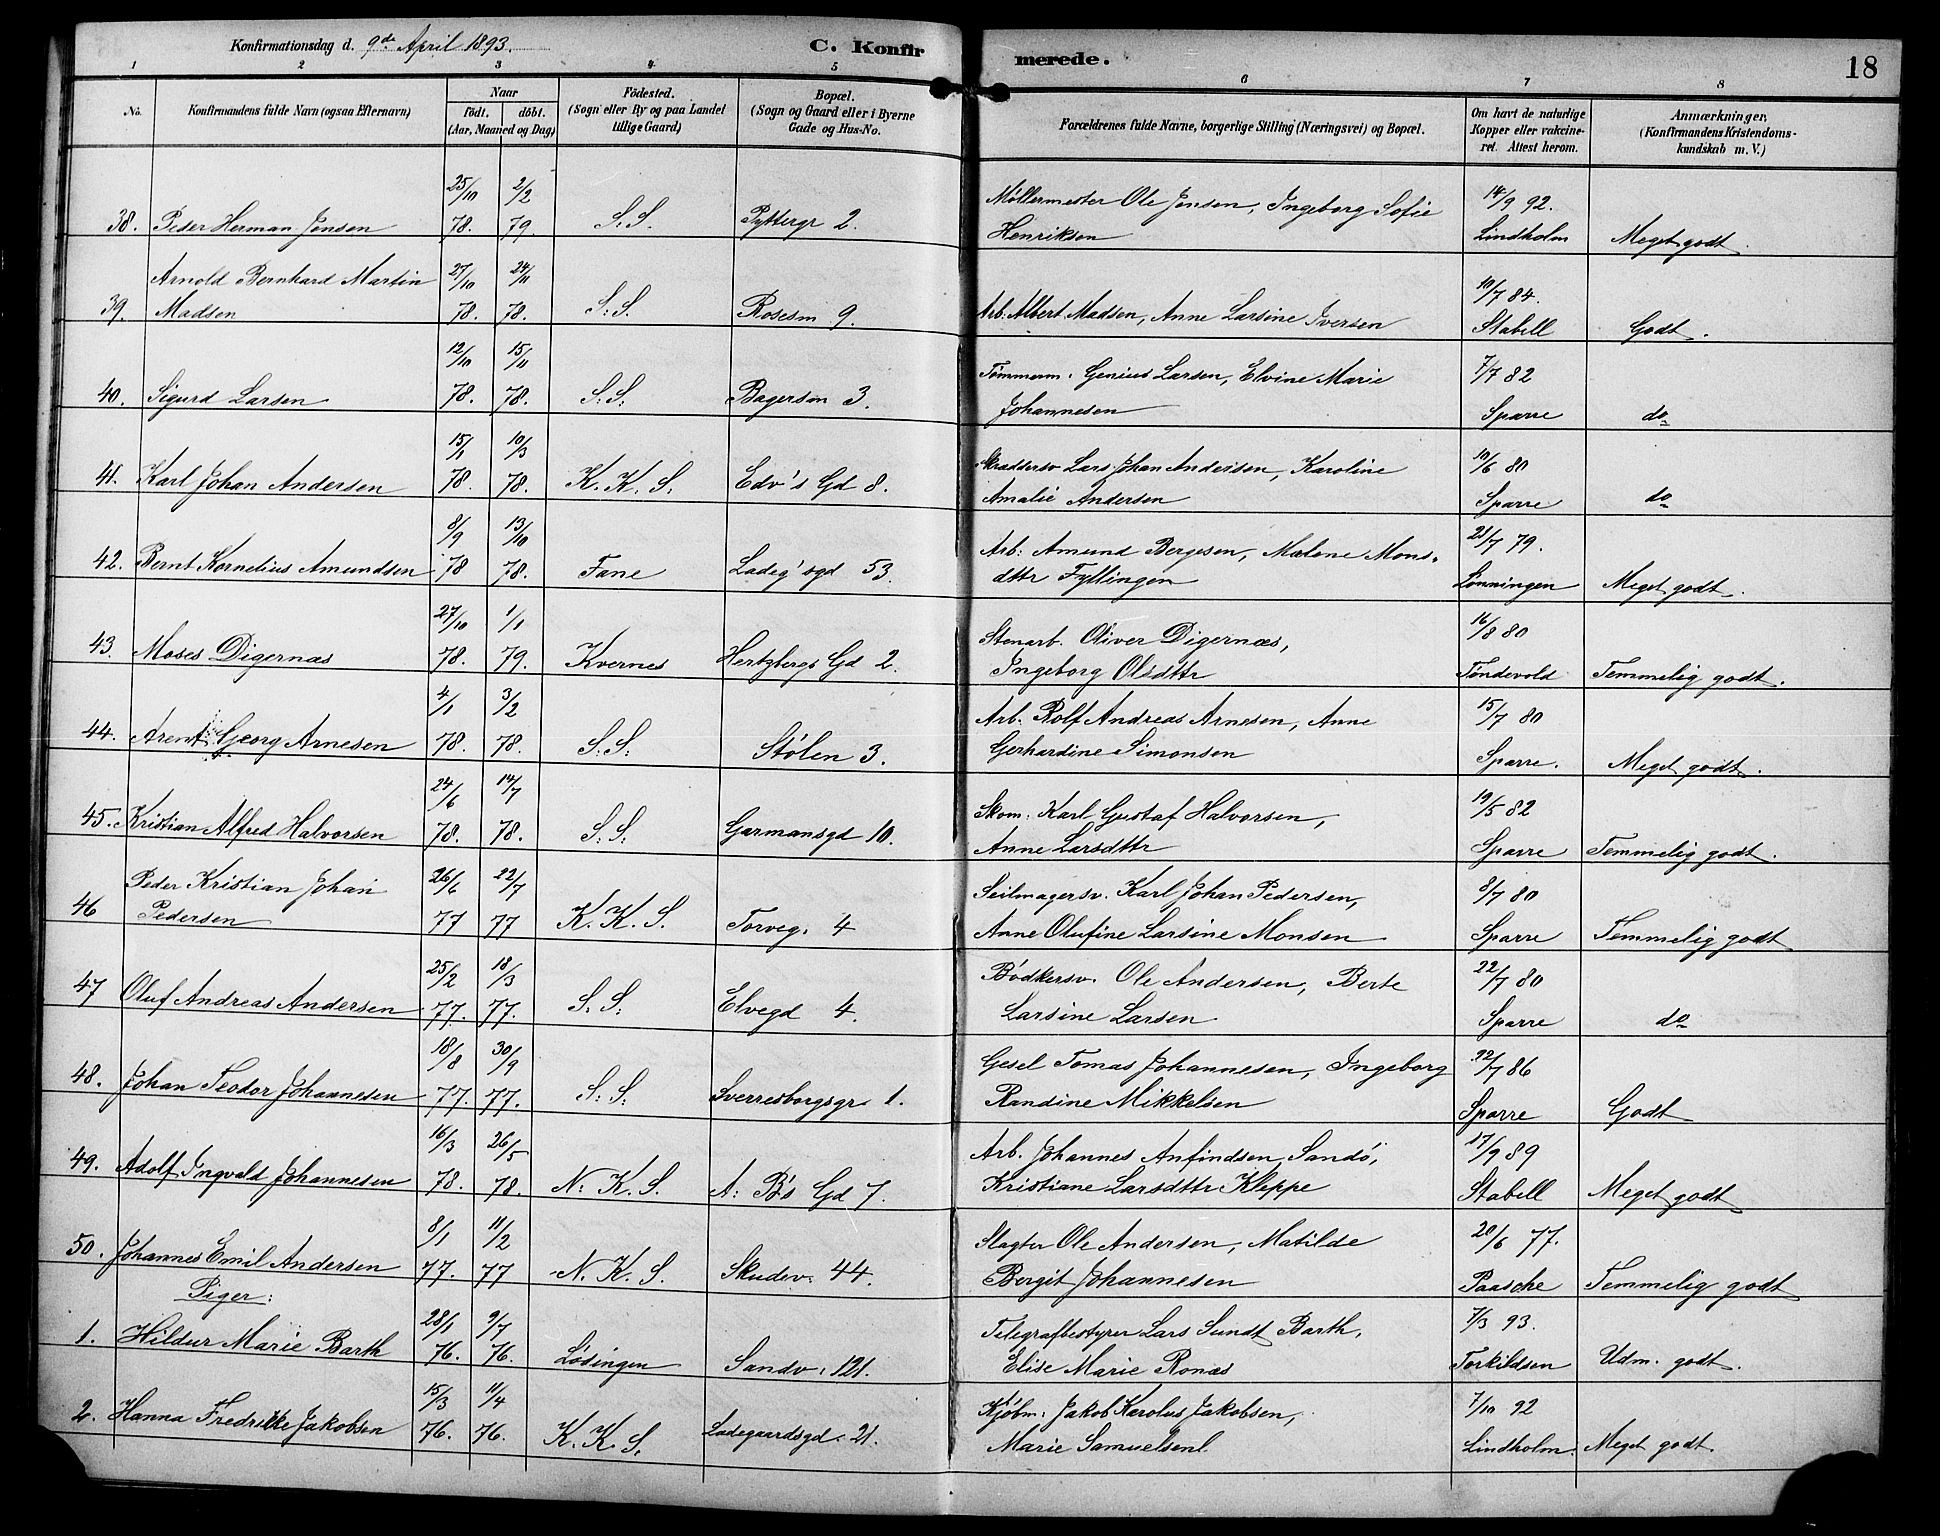 Konfirmationsdag d. 9de April 1893.
C. Konfir
merede.
18
1 2 3 4 5 6 7 8
No. Konfirmandens fulde Navn (ogsaa Efternavn) Naar födt. döbt. (Aar, Maaned og Dag) Födested. (Sogn eller By og paa Landet tillige Gaard) Bopæl. (Sogn og Gaard eller i Byerne Gade og Hus-No. Forældrenes fulde Navne, borgerlige Stilling (Næringsvei) og Bopæl. Om havt de naturlige Kopper eller vakcineret. Attest herom. Anmærkninger. (Konfirmandens Kristendomskundskab m. V.)
25/10 2/2 Møllermester Ole Jensen, Ingeborg Sofie 14/9 92.
38. Peder Herman Jensen 78. 79. S.S. Pyttergr 2. Henriksen Lindholm Meget godt.
Arnold Bernhard Martin 27/10 24/11 10/7 84.
39. Madsen 78. 78. S.S. Rosesm 9. Arb. Albert Madsen, Anne Larsine Iversen Stabell Godt.
12/10 15/11 Tømmerm. Genius Larsen, Elvine Marie 7/7 82
40. Sigurd Larsen 78. 78. S.S. Bagersm 3. Johannesen Sparre do
15/1 10/3 Skræddersv Lars Johan Andersen, Karoline 10/6 80
41. Karl Johan Andersen 78. 78. K.K.S. Edv's Gd 8. Amalie Andersen Sparre do
8/9 13/10 Arb: Amund Bergesen, Malene Mons- 23/7 79.
42. Bernt Kornelius Amundsen 78 78. Fane Ladeg'sgd 53. dttr Fyllingen Lønningen Meget godt.
27/10 1/1 Stenarb. Oliver Digernæs, 16/8 80
43. Moses Digernæs 78. 79. Kvernes Hertzbergs Gd 2. Ingeborg Olsdttr Tøndevold Temmelig godt.
4/1 3/2 Arb. Rolf Andreas Arnesen, Anne 15/7 80
44. Arent Georg Arnesen 78. 78. S.S. Stølen 3. Gerhardine Simonsen Sparre. Meget godt.
24/6 14/7 Skom: Karl Gustaf Halvorsen, 19/5 82
45. Kristian Alfred Halvorsen 78. 78. S.S. Garmansgd 10. Anne Larsdttr Sparre Temmelig godt.
Peder Kristian Johan 26/6 22/7 Seilmagersv. Karl Johan Pedersen, 8/7 80
46 Pedersen 77 77 K.K.S. Torveg. 4 Anne Olufine Larsine Monsen Sparre Temmelig godt
25/2 18/3 Bødkersv. Ole Andersen, Berte 22/7 80
47 Oluf Andreas Andersen 77. 77. S.S. Elvegd 4. Larsine Larsen Sparre do
18/8 30/9 Gesel Tomas Johannesen, Ingeborg 22/7 86
48. Johan Teodor Johannesen 77. 77. S.S. Sverresborgsgr 1. Randine Mikkelsen Sparre Godt
16/3 26/5 Arb. Johannes Anfindsen Sandö, 17/9 89
49. Adolf Ingvald Johannesen 78. 78. N.K.S. A: B's Gd 7. Kristiane Larsdttr Kleppe Stabell Meget godt
8/1 11/2 Slagter Ole Andersen, Matilde 20/6 77.
50. Johannes Emil Andersen 77. 77 N.K.S. Skudev. 44. Bergit Johannesen Paasche Temmelig godt
Piger:
28/1 9/7 Telegrafbestyrer Lars Sundt Barth, 7/3 93.
1. Hildur Marie Barth 76. 76. Lødingen Sandv. 121. Elise Marie Ronæs Torkildsen Udm. godt.
15/3 11/4 Kjøbm: Jakob Karolus Jakobsen, 7/10 92
2. Hanna Fredrikke Jakobsen 76. 76. K.K.S. Ladegaardsgd. 21. Marie Samuelsen Lindholm. Meget godt.